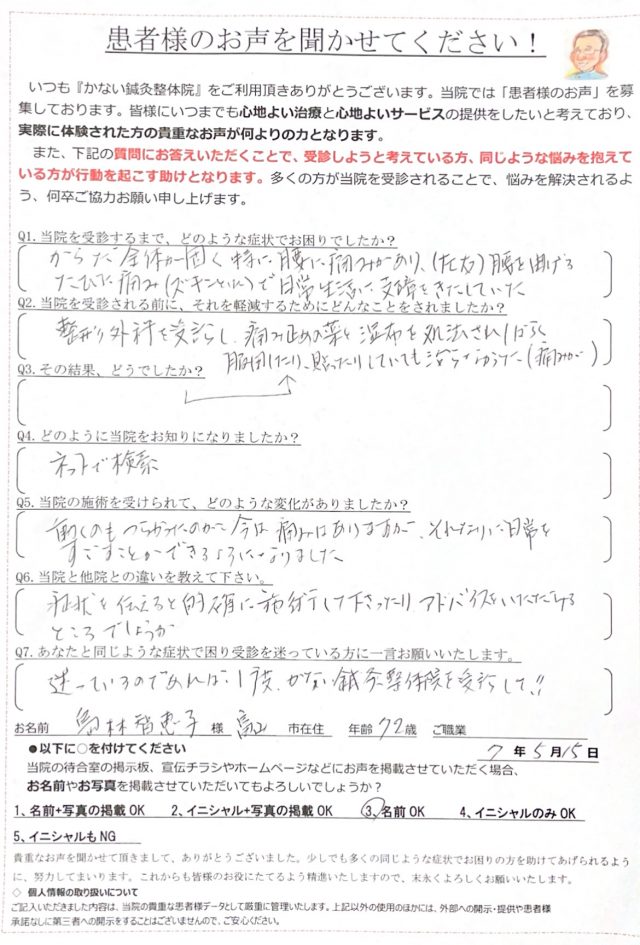 患者様のお声を聞かせてください！
いつも『かない鍼灸整体院』をご利用頂きありがとうございます。当院では「患者様のお声」を募
集しております。皆様にいつまでも心地よい治療と心地よいサービスの提供をしたいと考えており、
実際に体験された方の貴重なお声が何よりの力となります。
また、下記の質問にお答えいただくことで、受診しようと考えている方、同じような悩みを抱えて
いる方が行動を起こす助けとなります。多くの方が当院を受診されることで、悩みを解決されるよ
う、何卒ご協力お願い申し上げます。
Q1. 当院を受診するまで、どのような症状でお困りでしたか？
からだ全体が固く特に腰に痛みがあり、(左右)腰を曲げる
たびに痛み(ズキンといた)で日常生活に支障をきたしていた
Q2. 当院を受診される前に、それを軽減するためにどんなことをされましたか？
整形外科を受診し、痛み止めの薬と湿布を処法されしばらく
服用したり、貼ったりしていても治らなかった(痛みが)
Q3. その結果、どうでしたか？
Q4. どのように当院をお知りになりましたか？
ネットで検索
Q5. 当院の施術を受けられて、どのような変化がありましたか？
動くのもつらかったのが今は痛みはありますが、それなりに日常を
すごすことができるようになりました
Q6. 当院と他院との違いを教えて下さい。
症状を伝えると的確に施術して下さったりアドバイスをいただける
ところでしょうか
Q7. あなたと同じような症状で困り受診を迷っている方に一言お願いいたします。
迷っているのであれば、1度、かない鍼灸整体院を受診して!!
お名前 恵子 様 市在住 年齢 72歳 ご職業
●以下に○を付けてください 7年5月15日
当院の待合室の掲示板、宣伝チラシやホームページなどにお声を掲載させていただく場合、
お名前やお写真を掲載させていただいてもよろしいでしょうか？
1、名前+写真の掲載 OK 2、イニシャル+写真の掲載 OK 3、名前 OK 4、イニシャルのみ OK
5、イニシャルも NG
貴重なお声を聞かせて頂きまして、ありがとうございました。少しでも多くの同じような症状でお困りの方を助けてあげられるよう
に、努力してまいります。これからも皆様のお役にたてるよう精進いたしますので、末永くよろしくお願いいたします。
◇ 個人情報の取り扱いについて
ご記入いただきました内容は、当院の貴重な患者様データとして厳重に管理いたします。上記以外の使用のほかには、外部への開示・提供や患者様
承諾なしに第三者への開示をすることはございませんので、ご安心ください。